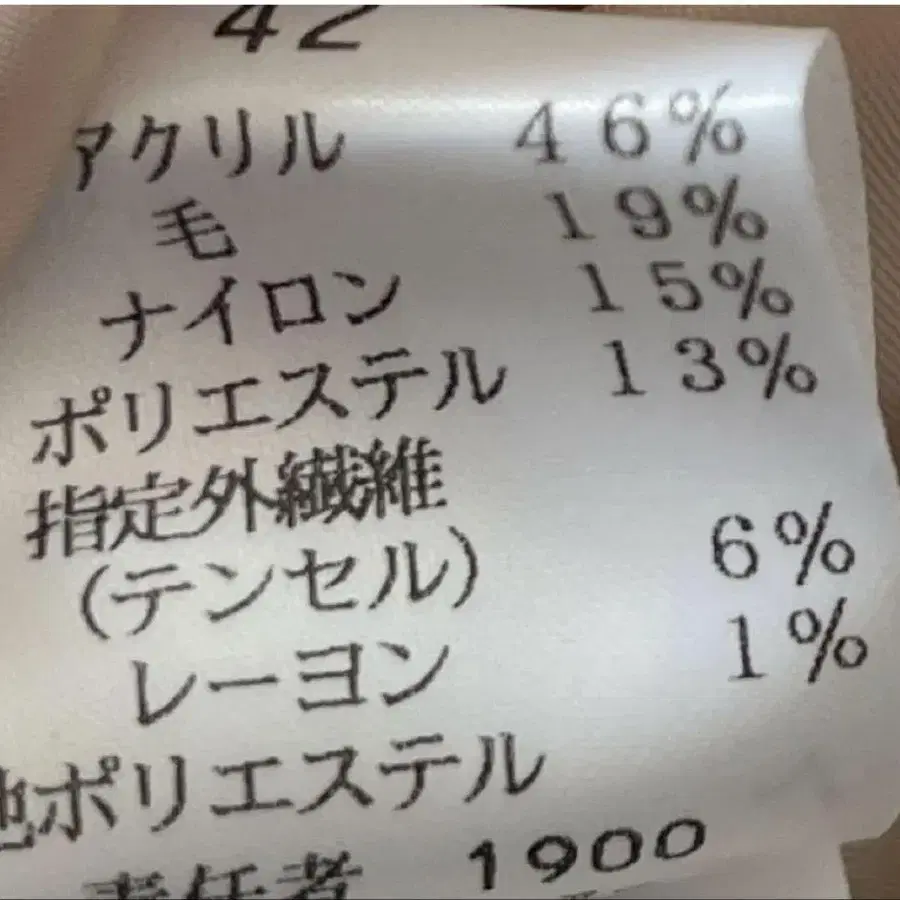 42
アクリル 46%
毛 19%
ナイロン 15%
ポリエステル 13%
指定外繊維
(テンセル) 6%
レーヨン 1%
地ポリエステル
責任者 1900